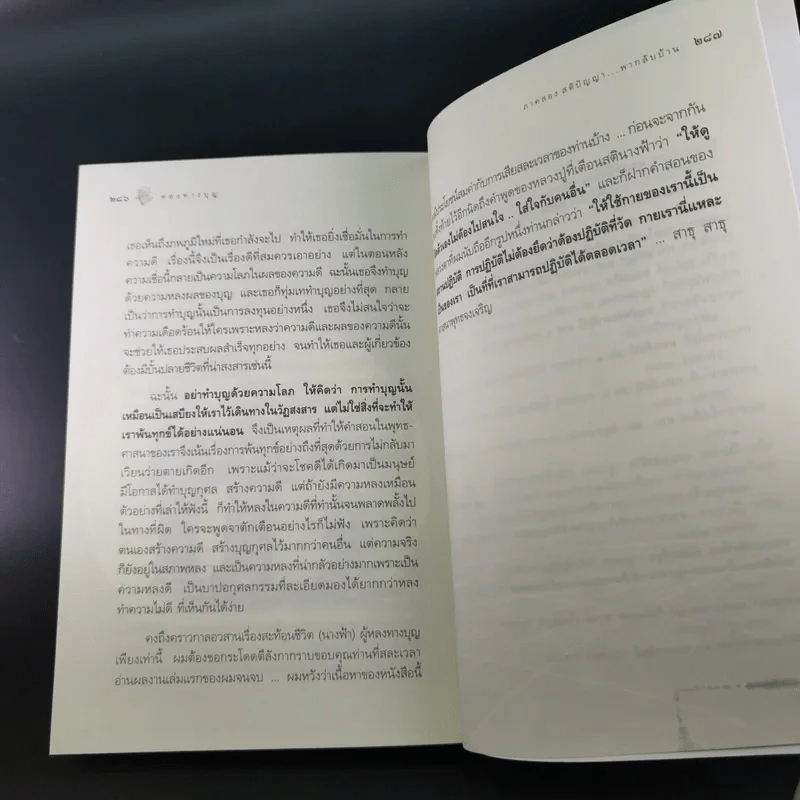 ๒๘๖ หลงทางบุญ
เธอเห็นถึงภพภูมิใหม่ที่เธอกำลังจะไป ทำให้เธอยิ่งเชื่อมั่นในการทำ
ความดี เรื่องนี้จึงเป็นเรื่องดีที่สมควรเอาอย่าง แต่ในตอนหลัง
ความเชื่อนี้กลายเป็นความโลภในผลของความดี ฉะนั้นเธอจึงทำบุญ
ด้วยความหลงผลของบุญ และเธอก็ทุ่มเททำบุญอย่างที่สุด กลาย
เป็นว่าการทำบุญนั้นเป็นการลงทุนอย่างหนึ่ง เธอจึงไม่สนใจว่าจะ
ทำความเดือดร้อนให้ใครเพราะหลงว่าความดีและผลของความดีนั้น
จะช่วยให้เธอประสบผลสำเร็จทุกอย่าง จนทำให้เธอและผู้เกี่ยวข้อง
ต้องมีบั้นปลายชีวิตที่น่าสงสารเช่นนี้
ฉะนั้น อย่าทำบุญด้วยความโลภ ให้คิดว่า การทำบุญนั้น
เหมือนเป็นเสบียงให้เราไว้เดินทางในวัฏสงสาร แต่ไม่ใช่สิ่งที่จะทำให้
เราพ้นทุกข์ได้อย่างแน่นอน จึงเป็นเหตุผลที่ทำให้คำสอนในพุทธ-
ศาสนาของเราจึงเน้นเรื่องการพ้นทุกข์อย่างถึงที่สุดด้วยการไม่กลับมา
เวียนว่ายตายเกิดอีก เพราะแม้ว่าจะโชคดีได้เกิดมาเป็นมนุษย์
มีโอกาสได้ทำบุญกุศล สร้างความดี แต่ถ้ายังมีความหลงเหมือน
ตัวอย่างที่เล่าให้ฟังนี้ ก็ทำให้หลงในความดีที่ทำนั้นจนพลาดพลั้งไป
ในทางที่ผิด ใครจะพูดจาตักเตือนอย่างไรก็ไม่ฟัง เพราะคิดว่า
ตนเองสร้างความดี สร้างบุญกุศลไว้มากกว่าคนอื่น แต่ความจริง
ก็ยังอยู่ในสภาพหลง และเป็นความหลงที่น่ากลัวอย่างมากเพราะเป็น
ความหลงดี เป็นบาปอกุศลกรรมที่ละเอียดมองได้ยากกว่าหลง
ทำความไม่ดี ที่เห็นกันได้ง่าย
คงถึงคราวกาลอวสานเรื่องสะท้อนชีวิต (นางฟ้า) ผู้หลงทางบุญ
เพียงเท่านี้ ผมต้องขอกระโดดตีลังกากราบขอบคุณท่านที่สละเวลา
อ่านผลงานเล่มแรกของผมจนจบ ... ผมหวังว่าเนื้อหาของหนังสือนี้
ภาคสอง สติปัญญา...พากลับบ้าน ๒๘๗
ประโยชน์สมค่ากับการเสียสละเวลาของท่านบ้าง ... ก่อนจะจากกัน
ทิ้งท้ายไว้อีกนิดถึงคำพูดของหลวงปู่ที่เตือนสตินางฟ้าว่า "ให้ดู
ตัวเองไม่ต้องไปสนใจ .. ใส่ใจกับคนอื่น" และก็ฝากคำสอนของ
ที่ผมนับถืออีกรูปหนึ่งท่านกล่าวว่า "ให้ใช้กายของเรานี้เป็น
ปฏิบัติ การปฏิบัติไม่ต้องยึดว่าต้องปฏิบัติที่วัด กายเรานี่แหละ
เป็นของเรา เป็นที่ที่เราสามารถปฏิบัติได้ตลอดเวลา" ... สาธุ สาธุ
พุทธจงเจริญ